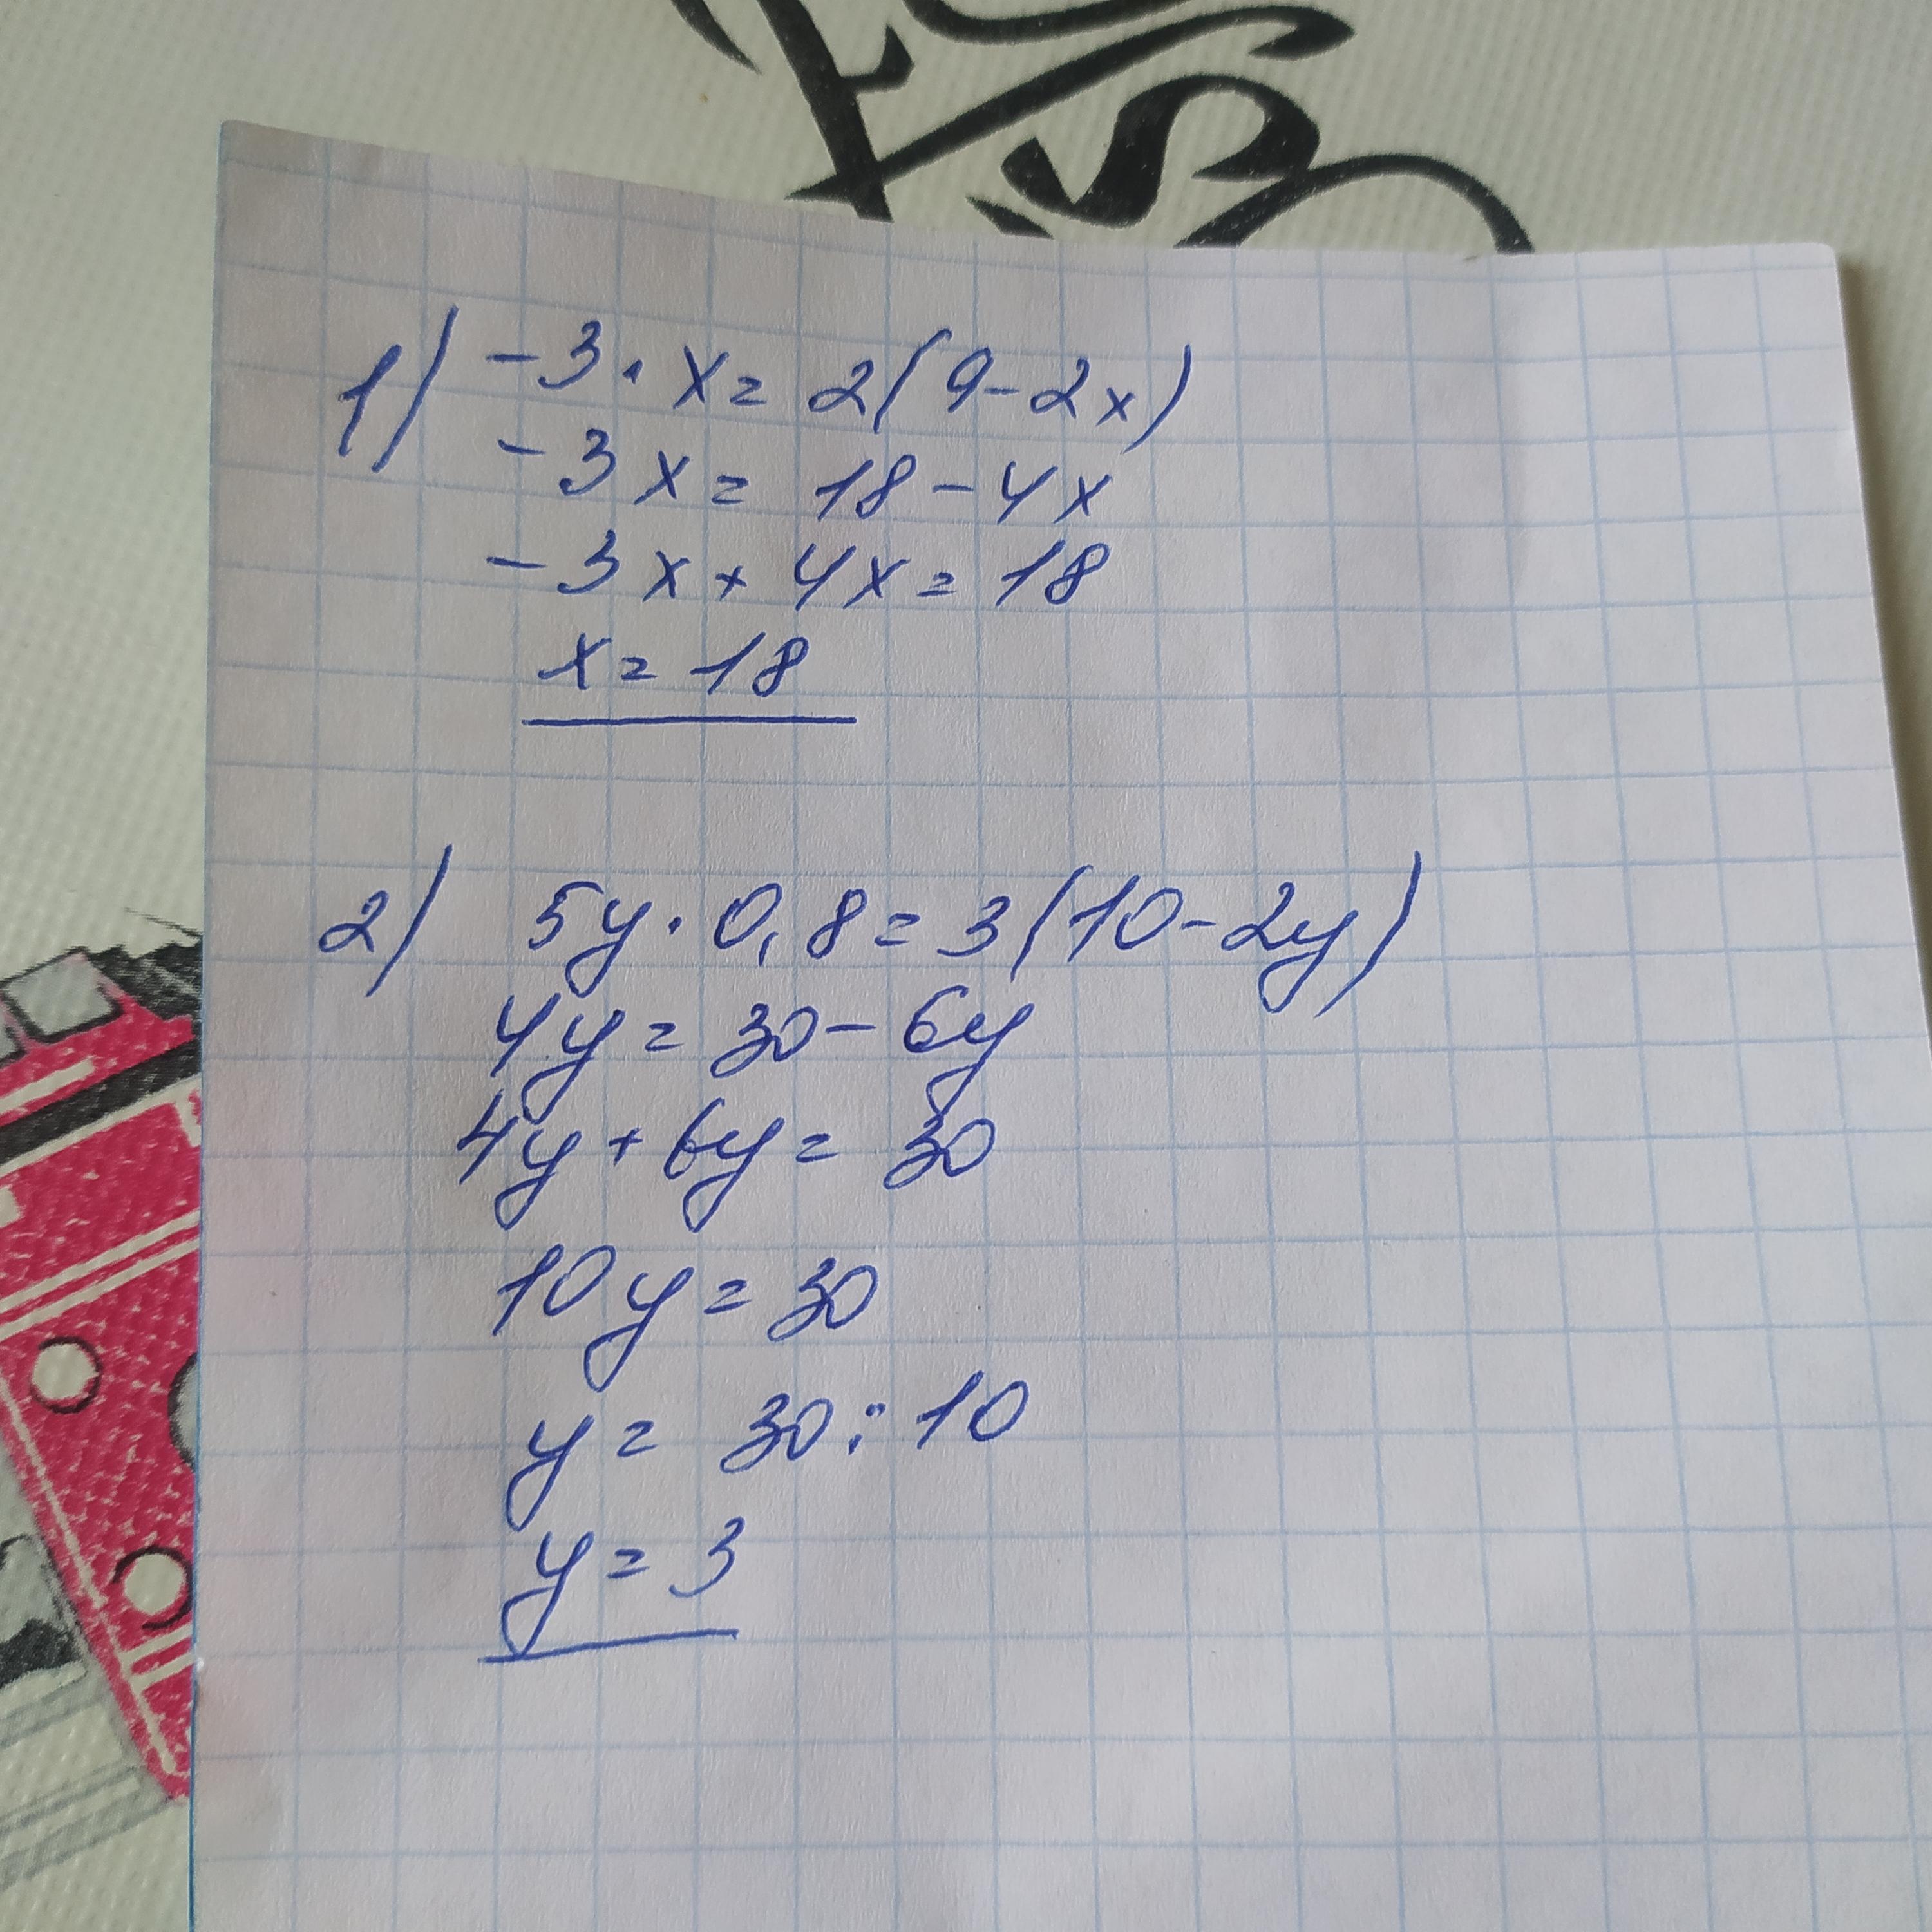 1) -3 · x = 2(9-2x)
-3x = 18-4x
-3x+4x=18
x=18
2) 5y · 0,8 = 3(10-2y)
4y = 30-6y
4y+6y=30
10y=30
y = 30:10
y=3